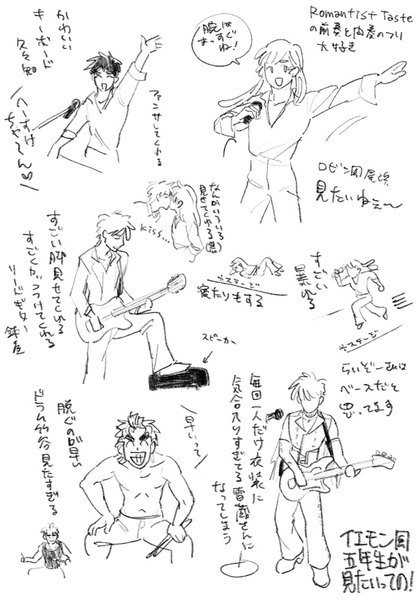 Romantist Taste
の前奏と間奏のフリ
大好き
腕は
まっすぐね!
かわいい
キーボード
久々知
へーすけ
ちゃーん♡
ファンサしてくれる
ロビン同尾浜
見たいねぇ〜
なんかいろいろ
見せてくれる(息)
kiss...
すごい脚見せてくれる
すごくカッコつけてくれる
リードギター
鉢屋
スピーカー
すごい
暴れる
※ステージで
寝たりもする
※ステージ
らいぞーさんは
ベースだと
思ってます
毎回一人だけ衣装に
気合入りすぎてる雷蔵さんに
なってしまう
早いって
脱ぐの早い
ドラム竹谷見たすぎる
イエモン同
五年生が
見たいっての!